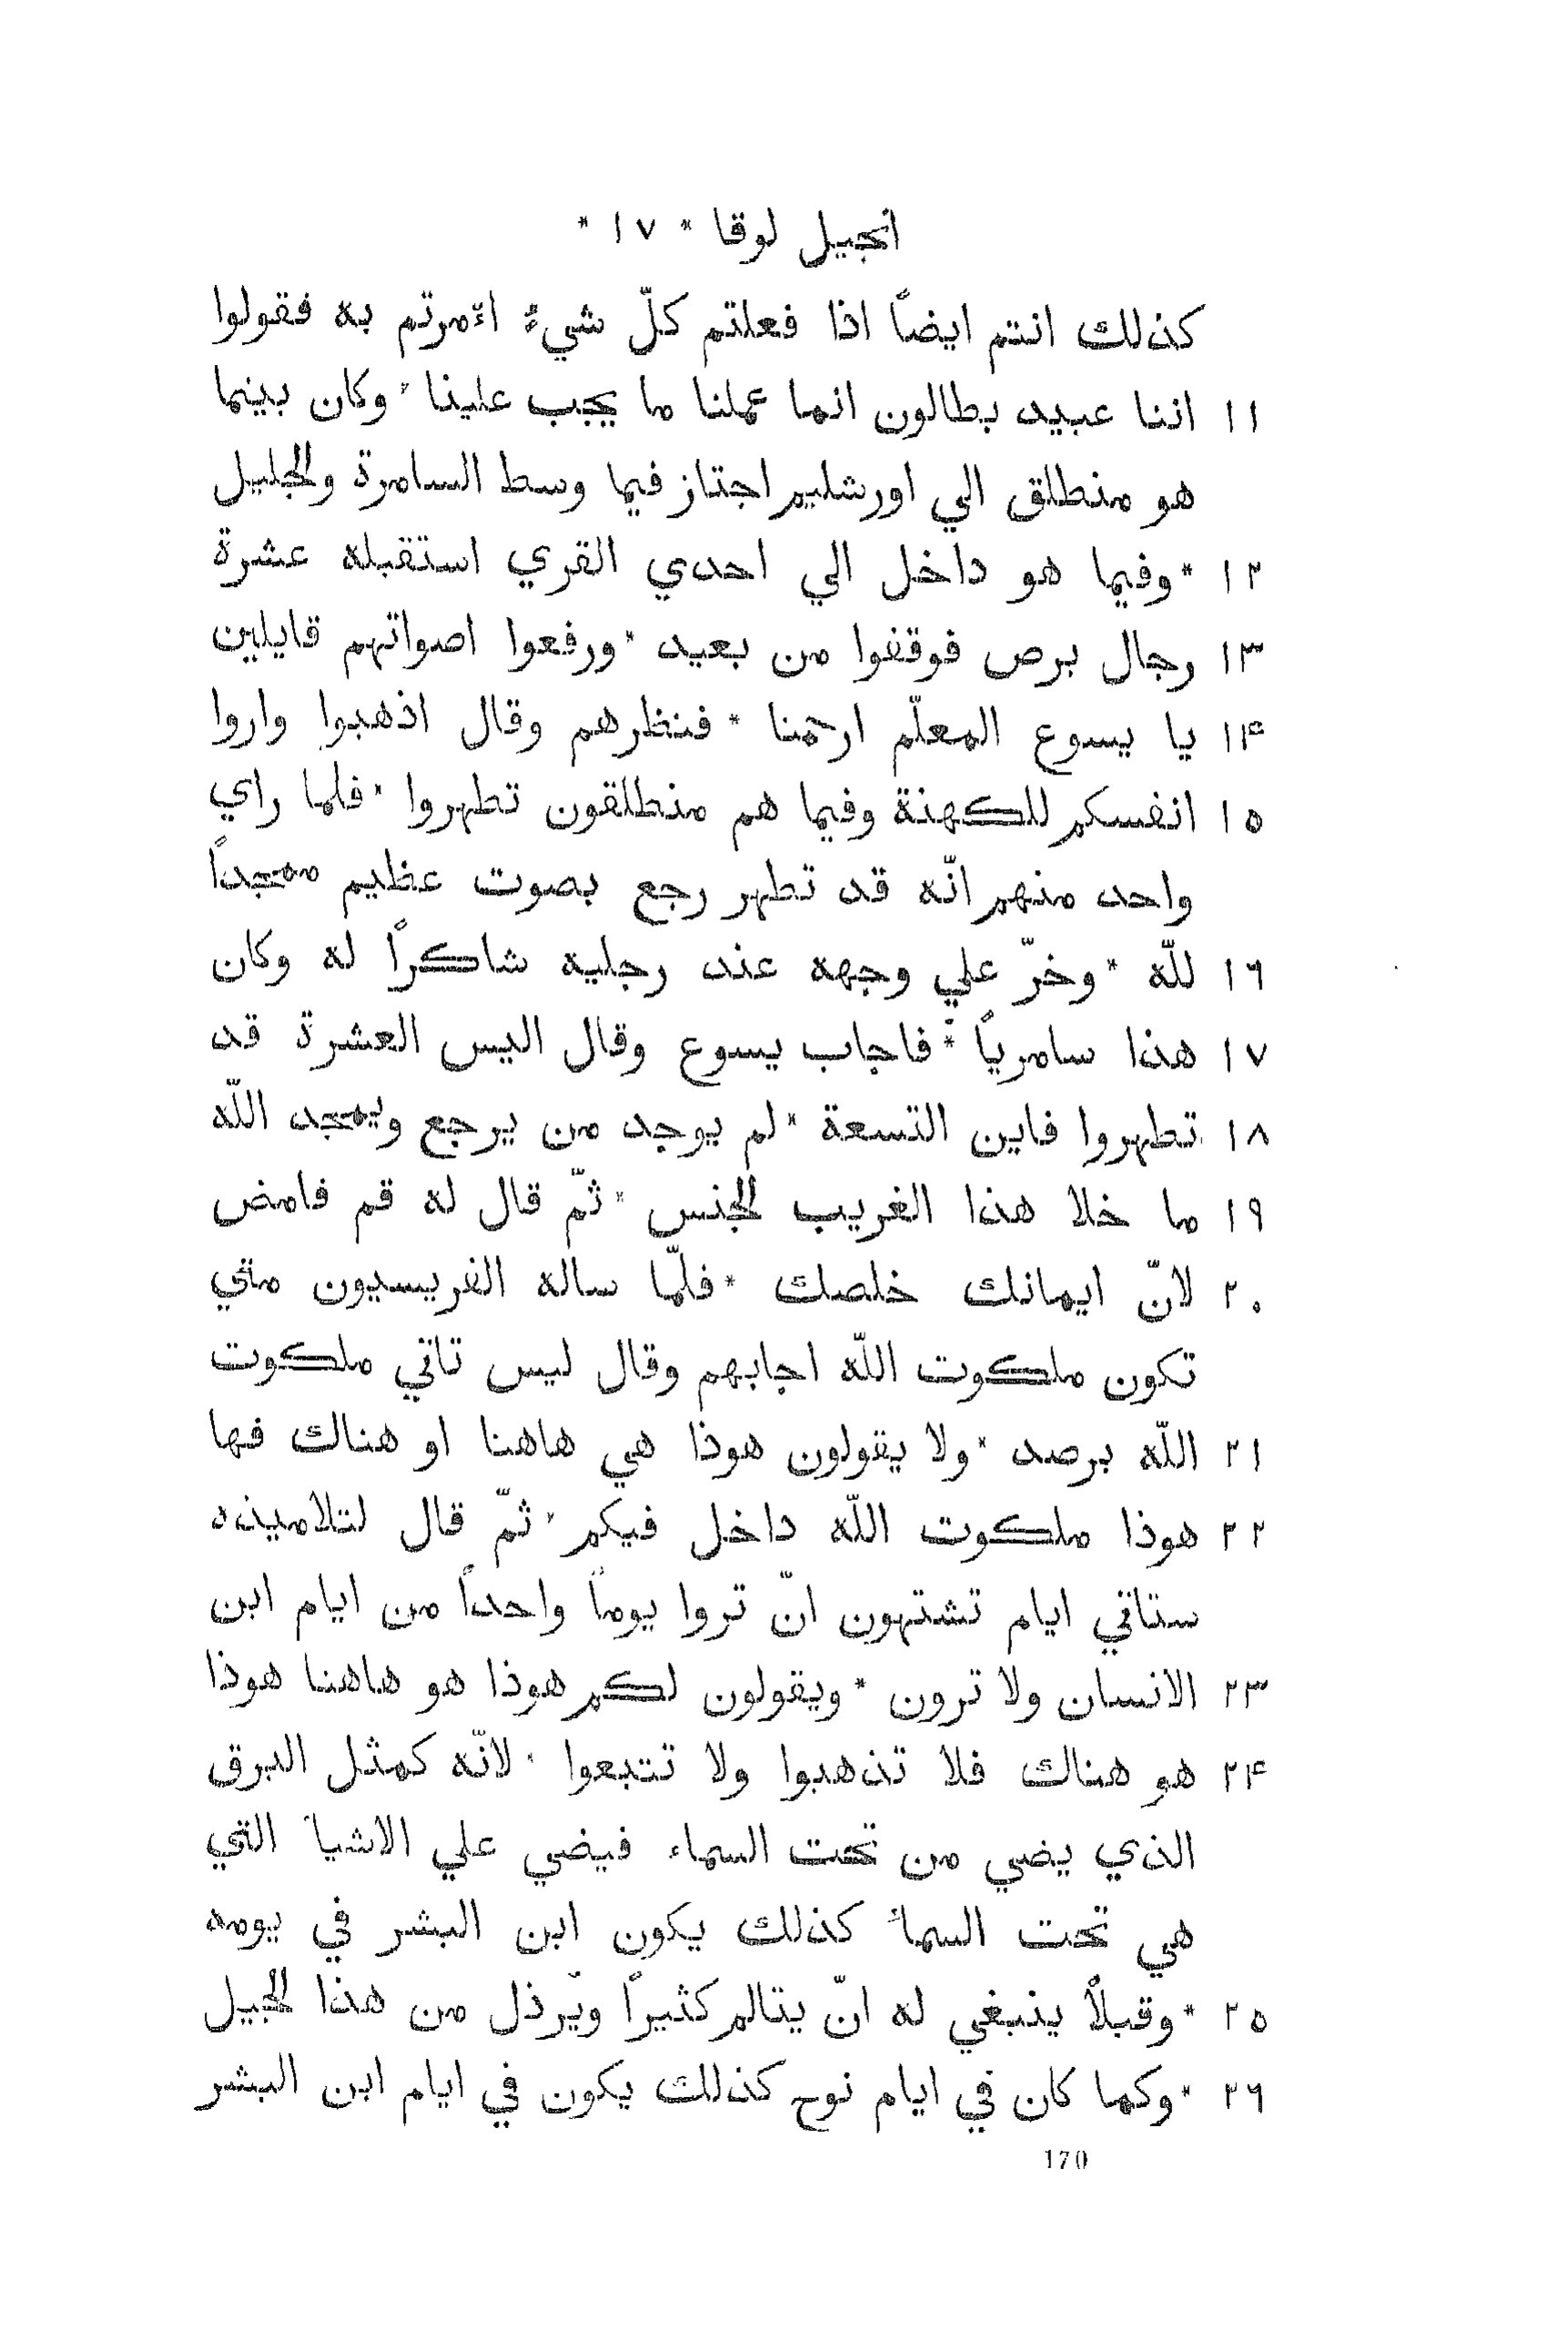 انجيل لوقا * ١٧ *
كذلك انتم ايضاً اذا فعلتم كلّ شيءٍ اءمرتم به فقولوا
١١ اننا عبيد بطالون انما عملنا ما يجب علينا * وكان بينما
هو منطلق الي اورشليم اجتاز فيما وسط السامرة والجليل
١٢ * وفيما هو داخل الي احدي القري استقبله عشرة
١٣ رجال برص فوقفوا من بعيد * ورفعوا اصواتهم قايلين
١۴ يا يسوع المعلّم ارحمنا * فنظرهم وقال اذهبوا واروا
١٥ انفسكم للكهنة وفيما هم منطلقون تطهروا * فلما راي
واحد منهم انّه قد تطهر رجع بصوت عظيم ممجداً
١٦ للّه * وخرّ علي وجهه عند رجليه شاكراً له وكان
١٧ هذا سامرياً * فاجاب يسوع وقال اليس العشرة قد
١٨ تطهروا فاين التسعة * لم يوجد من يرجع ويمجد اللّه
١٩ ما خلا هذا الغريب الجنس * ثمّ قال له قم فامض
٢٠ لانّ ايمانك خلصك * فلمّا ساله الفريسيون متي
تكون ملكوت اللّه اجابهم وقال ليس تاتي ملكوت
٢١ اللّه برصد * ولا يقولون هوذا هي هاهنا او هناك فها
٢٢ هوذا ملكوت اللّه داخل فيكم * ثمّ قال لتلاميذه
ستاتي ايام تشتهون انّ تروا يوماً واحداً من ايام ابن
٢٣ الانسان ولا ترون * ويقولون لكم هوذا هو هاهنا هوذا
٢۴ هو هناك فلا تذهبوا ولا تتبعوا * لانّه كمثل البرق
الذي يضي من تحت السماء فيضي علي الاشيا التي
هي تحت السماً كذلك يكون ابن البشر في يومه
٢٥ * وقبلاً ينبغي له انّ يتالم كثيراً ويّرذل من هذا الجيل
٢٦ * وكما كان في ايام نوح كذلك يكون في ايام ابن البشر
170